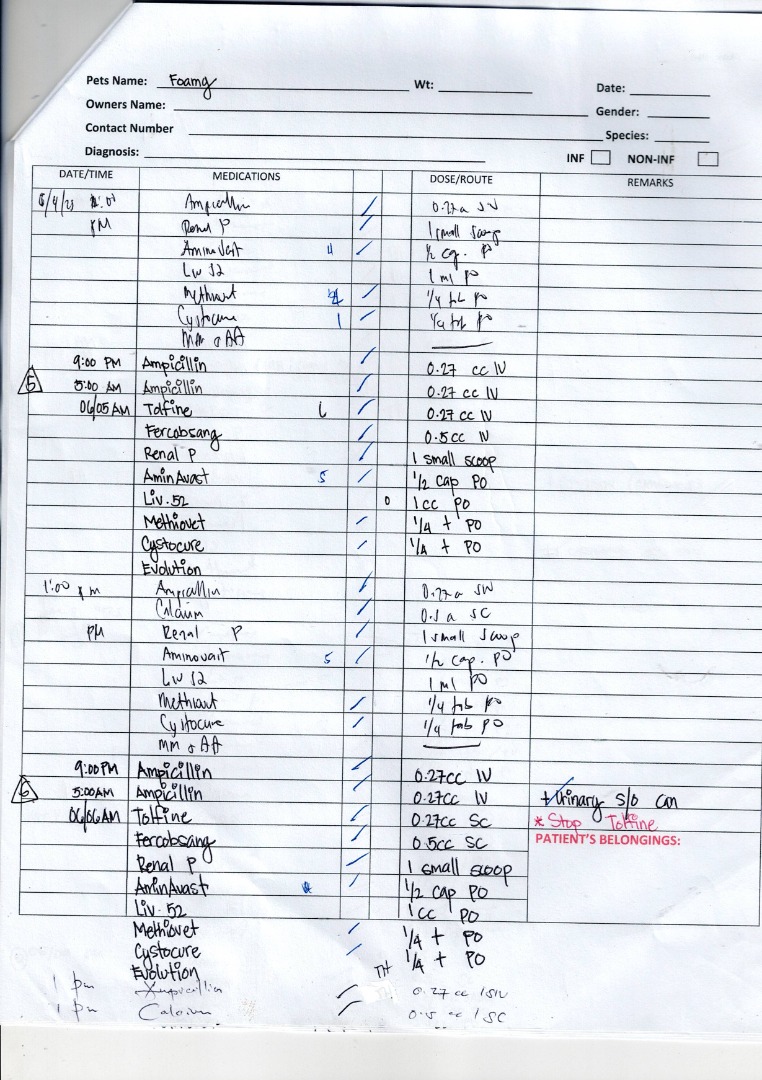 Pets Name: Foamy Wt: Date:
Owners Name: Gender:
Contact Number Species:
Diagnosis: INF NON-INF
DATE/TIME MEDICATIONS DOSE/ROUTE REMARKS
Ampicillin
PM Renal P 1 small scoop
4 1/2 cap. PO
1 ml PO
1/4 tab PO
Cystocure 1 1/4 tab PO
9:00 PM Ampicillin 0.27 cc IV
5 5:00 AM Ampicillin 0.27 cc IV
06/05 AM Tolfine 0.27 cc IV
Fercobsang 0.5cc IV
Renal P 1 small scoop
AminAvast 5 1/2 cap PO
Liv.52 0 1cc PO
Methiovet 1/4 t PO
Cystocure 1/4 t PO
Evolution
1:00 pm Ampicillin
Calcium SC
PM Renal P 1 small scoop
Aminovast 5 1/2 cap. PO
1 ml PO
1/4 tab PO
Cystocure 1/4 tab PO
9:00PM Ampicillin 0.27cc IV
6 5:00AM Ampicillin 0.27cc IV + Urinary s/o can
06/06AM Tolfine 0.27cc SC * Stop Tolfine
Fercobsang 0.5cc SC PATIENT'S BELONGINGS:
Renal P 1 small scoop
AminAvast 1/2 cap PO
Liv.52 1cc PO
Methiovet 1/4 t PO
Cystocure 1/4 t PO
Evolution TH
1 pm 0.27 cc
1 pm Calcium 0.5 cc / SC